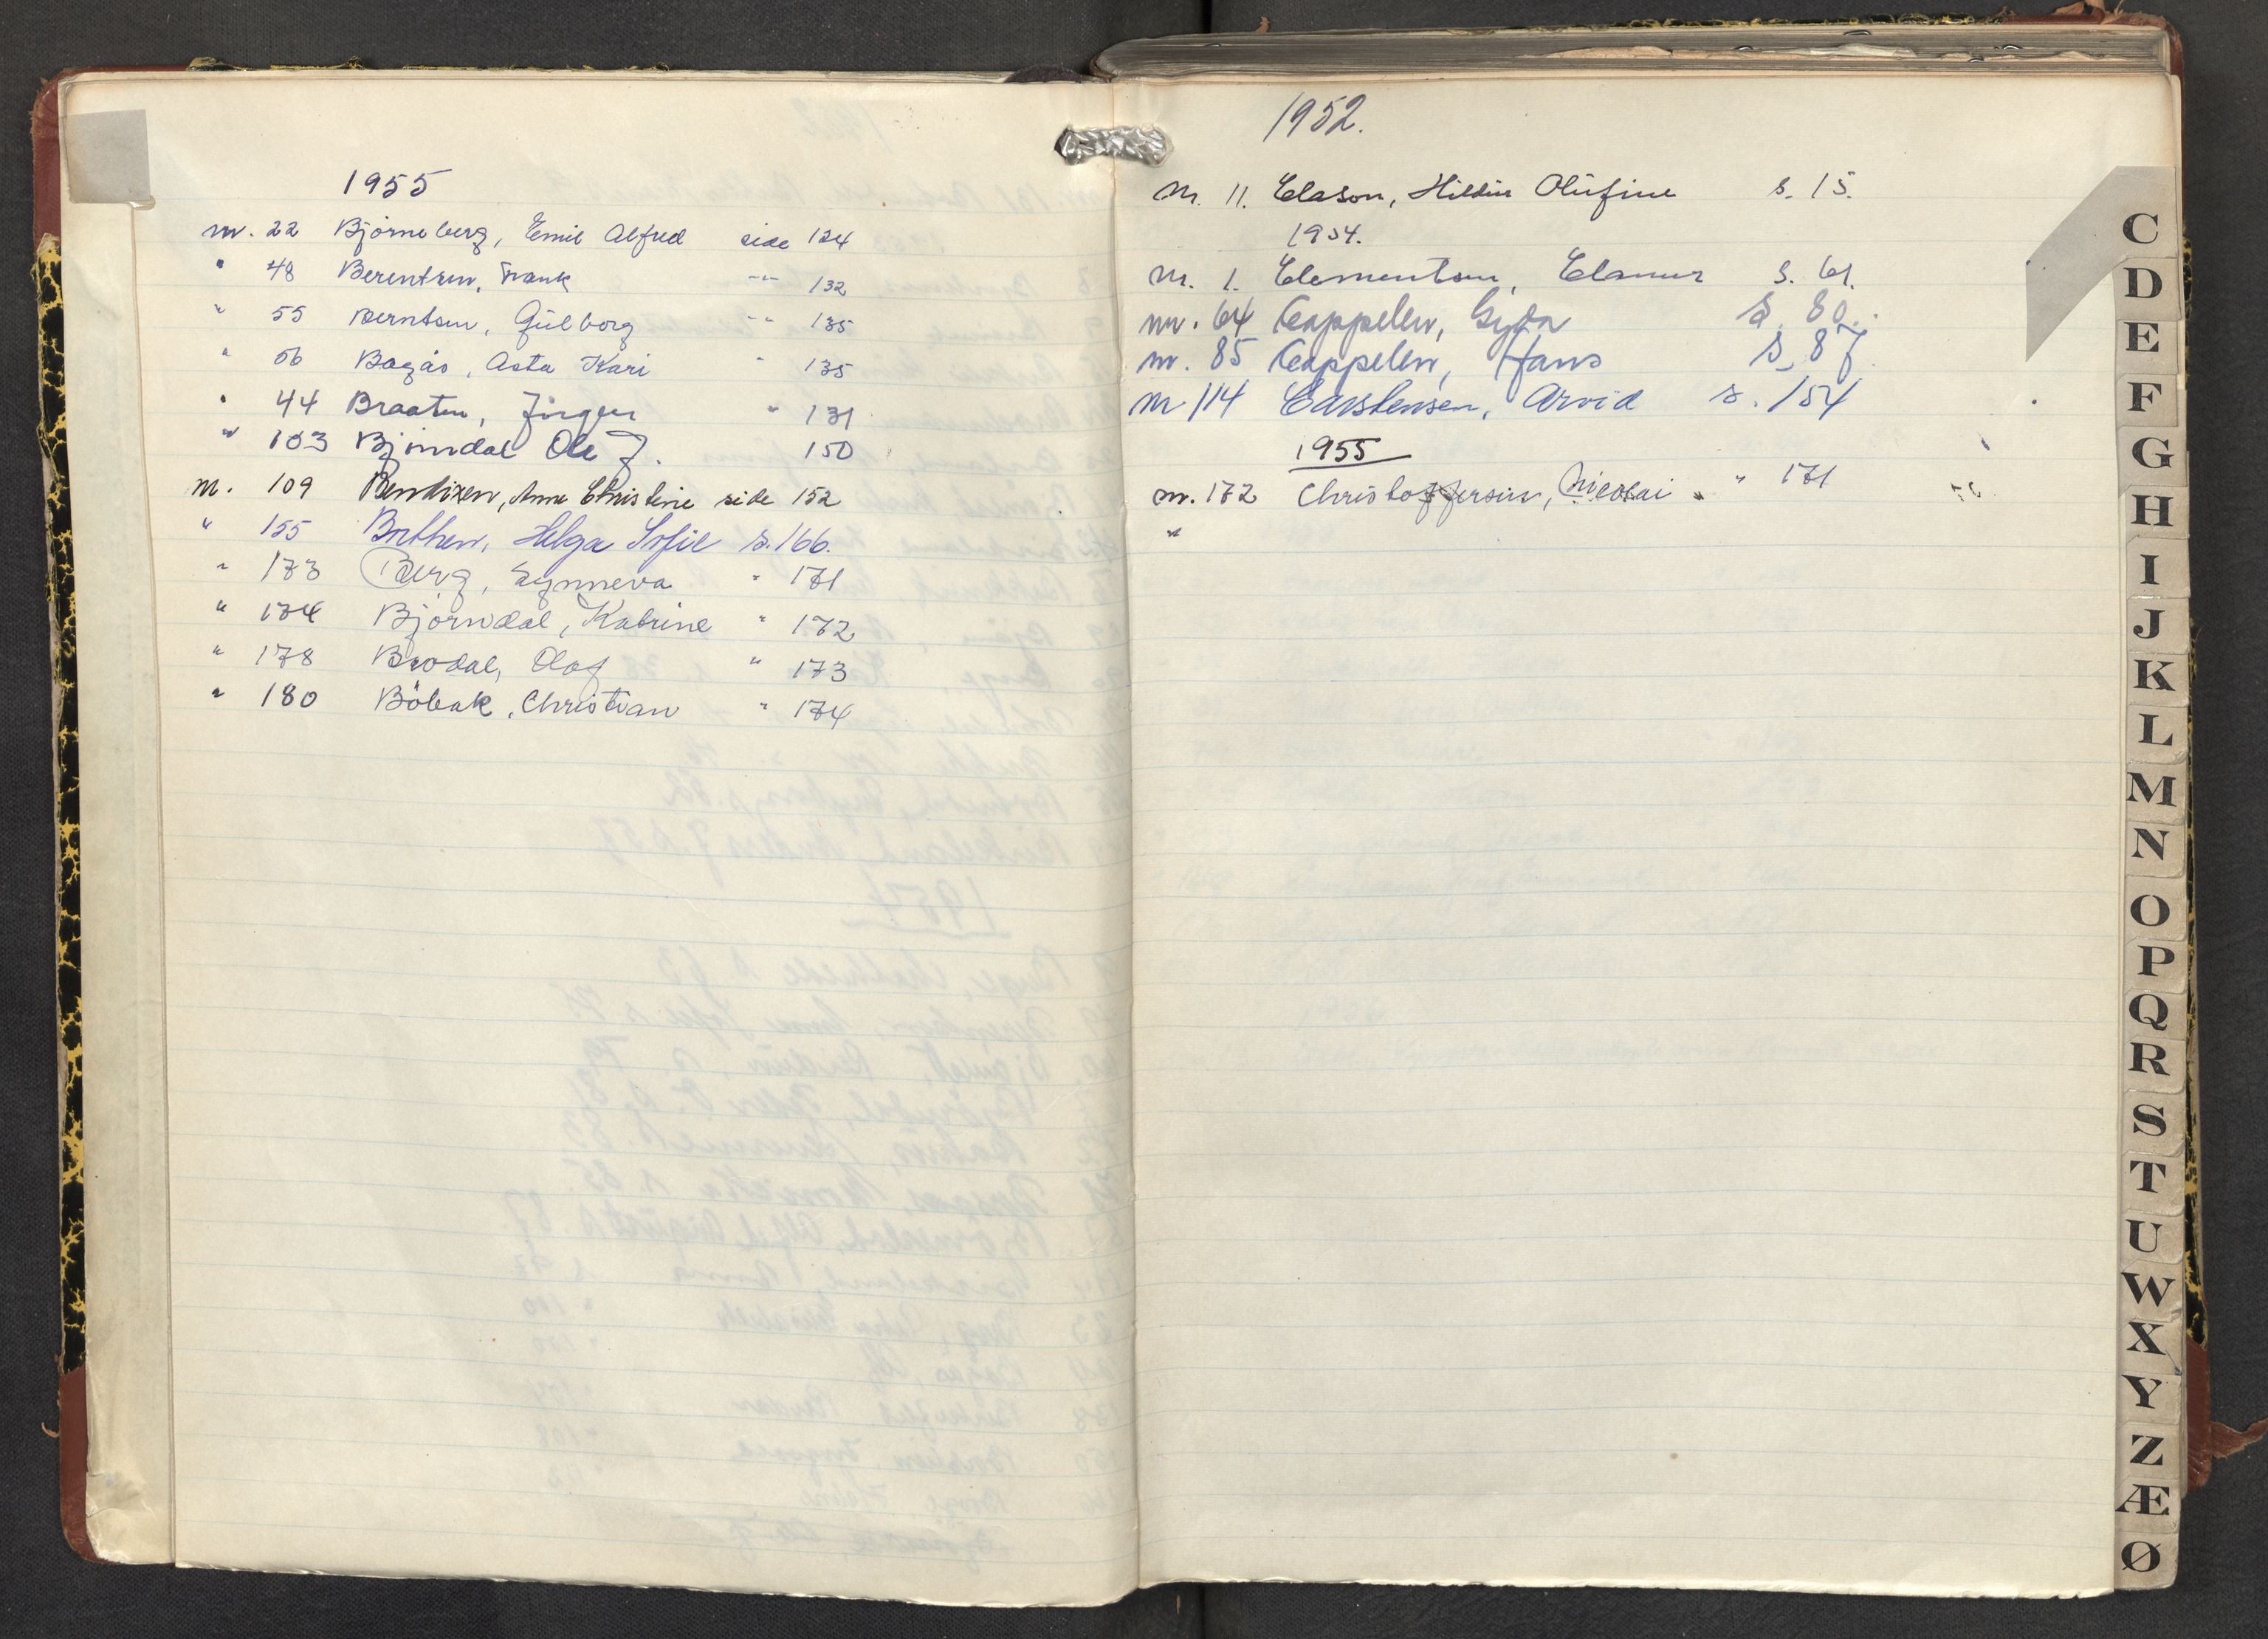 1955
nr. 22 Bjørneberg, Emil Alfred side 124
" 48 Berentsen, Frank -"- 132
" 55 Berntsen, Gulborg -"- 135
" 56 Bagås, Asta Kari " 135
" 44 Braaten, Jörgen " 131
" 103 Bjørndal Ole J. 150
nr. 109 Bendixen, Anne Christine side 152
" 155 Brethen, Helga Sofie s. 166.
" 173 Berg, Synneva " 171
" 174 Bjørndal, Katrine " 172
" 178 Brodal, Olaf " 173
" 180 Böbak, Christian " 174
1952.
nr. 11. Clason, Hildur Olufine s. 15.
1954.
nr. 1. Clementsen, s. 61.
nr. 64 Cappelen, Gyda s. 80.
nr. 85 Cappelen, Hans s. 87
nr 114 Carstensen, Arvid s. 154
1955
nr. 172 Christoffersen, Nicolai " 171
"
C
D
E
F
G
H
I
J
K
L
M
N
O
P
Q
R
S
T
U
W
X
Y
Z
Æ
Ø